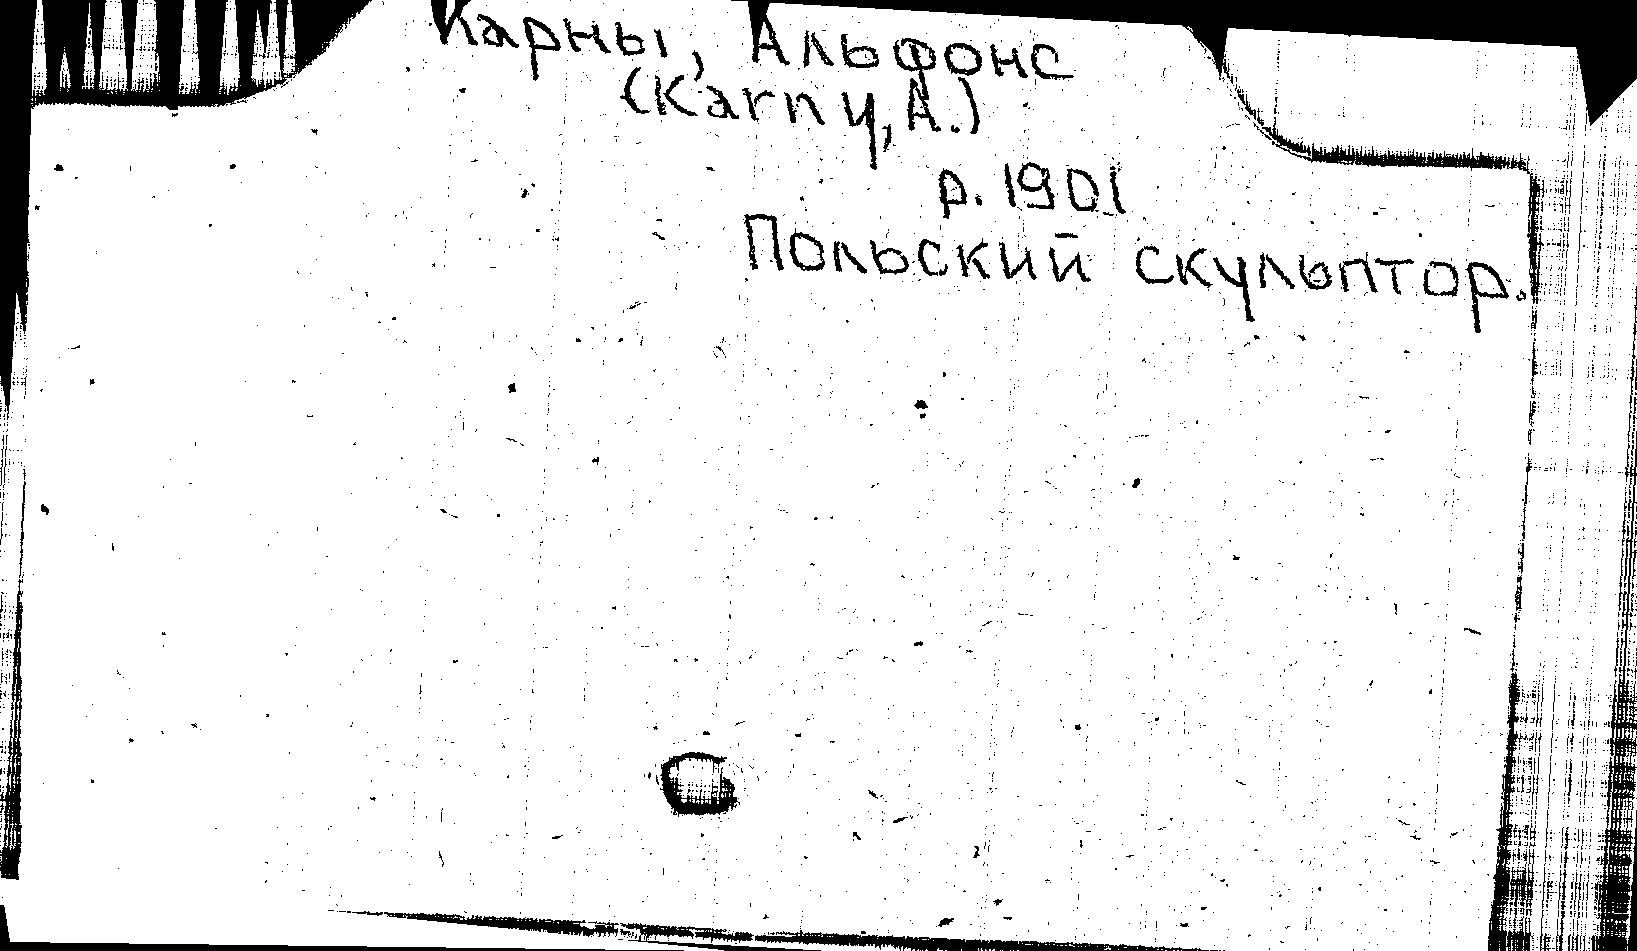 Карны, Альфонс
(Karny, A.)
р. 1901
Польский скульптор.